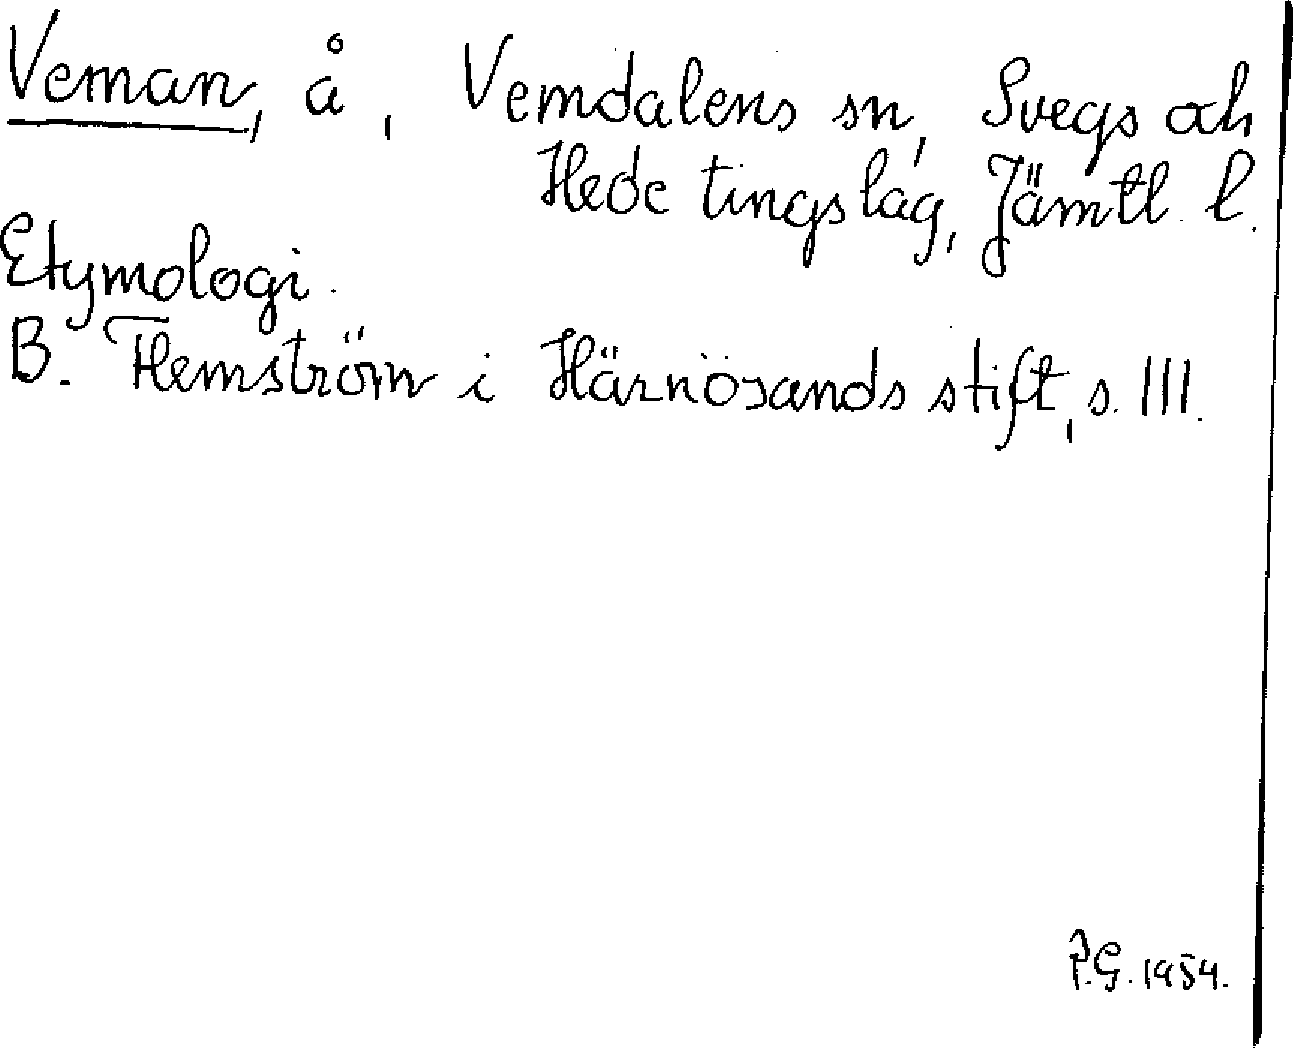 Veman, å, Vemdalens sn, Svegs och
Hede tingslag, Jämtl. l.
Etymologi.
B. Flemström i Härnösands stift, s. 111.
P.G. 1954.